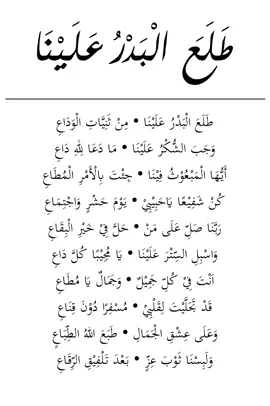 طَلَعَ الْبَدْرُ عَلَيْنَا
طَلَعَ الْبَدْرُ عَلَيْنَا • مِنْ ثَنِيَّاتِ الْوَدَاعِ
وَجَبَ الشُّكْرُ عَلَيْنَا • مَا دَعَا لِلّٰهِ دَاعِ
أَيُّهَا الْمَبْعُوْثُ فِيْنَا • جِئْتَ بِالْأَمْرِ الْمُطَاعِ
كُنْ شَفِيْعًا يَاحَبِيْبِيْ • يَوْمَ حَشْرٍ وَاجْتِمَاعِ
رَبَّنَا صَلِّ عَلَى مَنْ • حَلَّ فِيْ خَيْرِ الْبِقَاعِ
وَاسْبِلِ السِّتْرَ عَلَيْنَا • يَا مُجِيْبًا كُلَّ دَاعِ
اَنْتَ فِيْ كُلِّ جَمِيْلٌ • وَجَمَالٌ يَا مُطَاعِ
قَدْ تَجَلَّيْتَ لِقَلْبِيْ • مُسْفِرًا دُوْنَ قِنَاعِ
وَعَلَى عِشْقِ الْجَمَالِ • طَبَعَ اللهُ الطِّبَاعِ
وَلَبِسْنَا ثَوْبَ عِزٍّ • بَعْدَ تَلْفِيْقِ الرِّقَاعِ